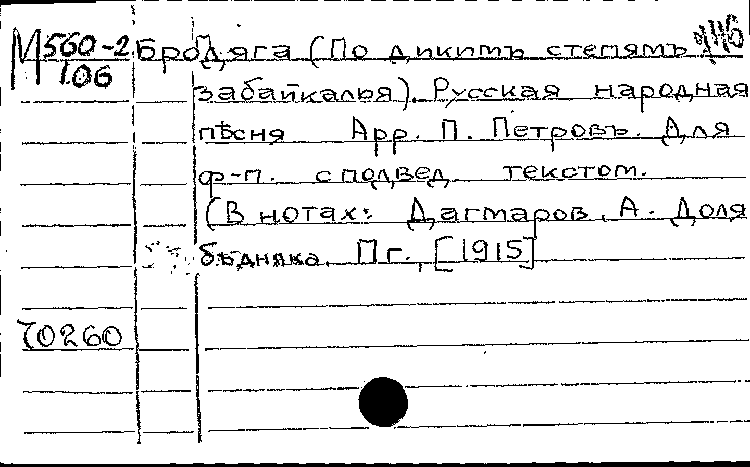 М 560-2 Бродяга (По дикимъ степямъ
106 забайкалья). Русская народная
пѣсня Арр. П. Петровъ. Для
ф-п. с подвед. текстом.
(В нотах: Дагмаров, А. Доля
бѣдняка. Пг., [1915]
70260